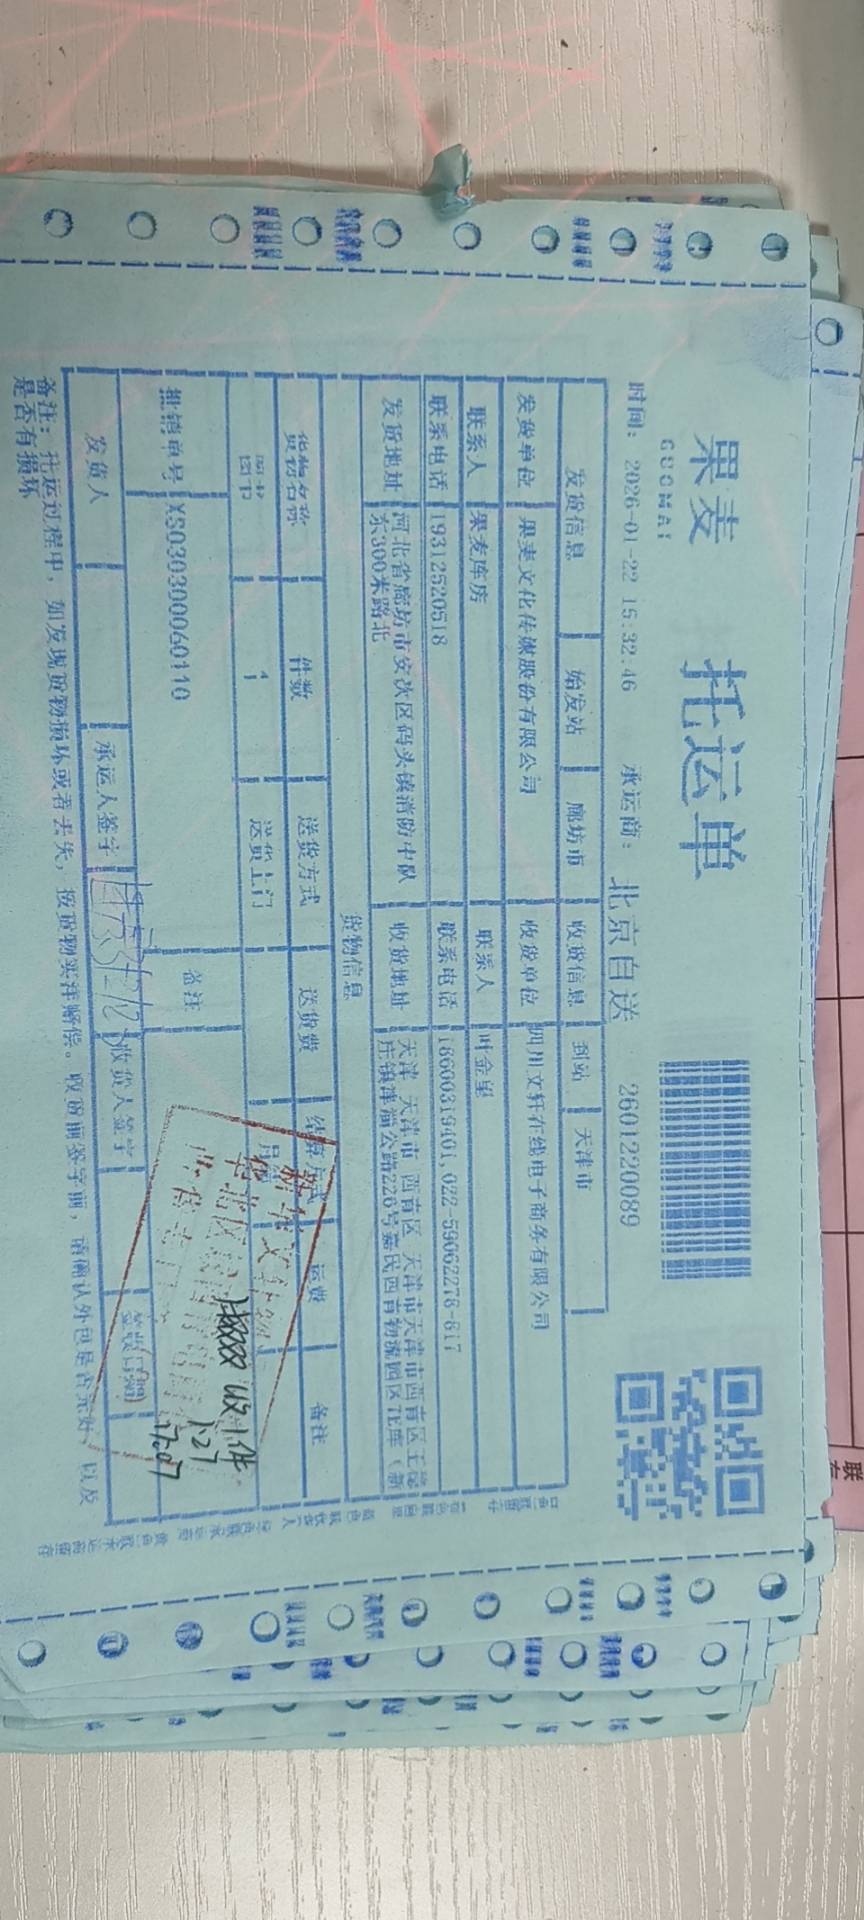 果麦
GUOMAI
托运单
时间: 2026-01-22 15:32:46 承运商: 北京自送 2601220089
发货信息 始发站 廊坊市 收货信息 到站 天津市
发货单位 果麦文化传媒股份有限公司 收货单位 四川文轩在线电子商务有限公司
联系人 果麦库房 联系人 叶金星
联系电话 19312520518 联系电话 18600319401,022-59062278-817
发货地址 河北省廊坊市安次区码头镇消防中队 收货地址 天津 天津市 西青区 天津市天津市西青区王
东300米路北 庄镇津淄公路226号嘉民西青物流园区7E库(新
货物信息
货物名称 件数 送货方式 送货费 结算方式 运费 备注
图书 1 送货上门
推销单号 XS030300060110 备注
收1件
1.27
发货人 承运人签字 收货人签字 签收日期
备注: 托运过程中, 如发现货物损坏或者丢失, 按货物实洋赔偿。收货前签字前, 请确认外包是否完好, 以及
是否有损坏